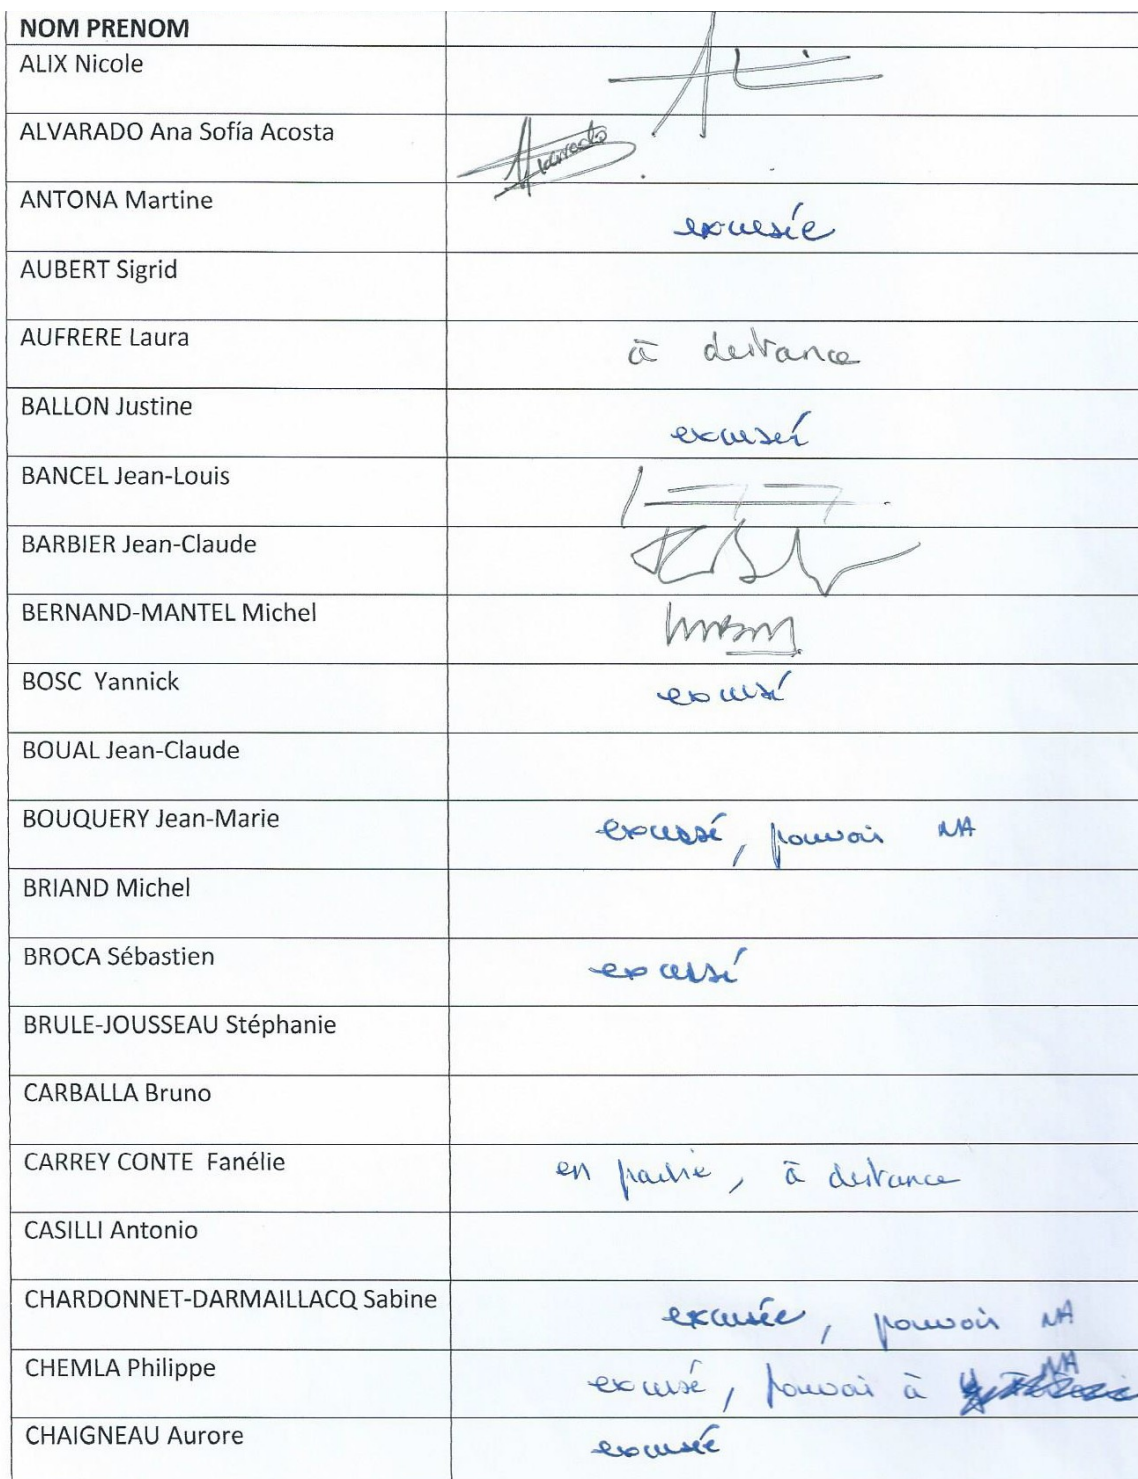 NOM PRENOM
ALIX Nicole
ALVARADO Ana Sofía Acosta Alvarado
ANTONA Martine excusée
AUBERT Sigrid
AUFRERE Laura à distance
BALLON Justine excusée
BANCEL Jean-Louis
BARBIER Jean-Claude
BERNAND-MANTEL Michel
BOSC Yannick excusé
BOUAL Jean-Claude
BOUQUERY Jean-Marie excusé, pouvoir NA
BRIAND Michel
BROCA Sébastien excusé
BRULE-JOUSSEAU Stéphanie
CARBALLA Bruno
CARREY CONTE Fanélie en partie, à distance
CASILLI Antonio
CHARDONNET-DARMAILLACQ Sabine excusée, pouvoir NA
CHEMLA Philippe excusé, pouvoir à NA
CHAIGNEAU Aurore excusée